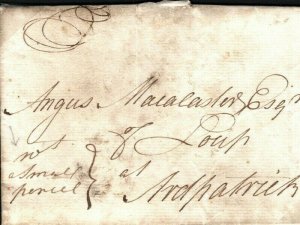 Angus Macalaster Esqr
of Loup
at
Ardpatrick
wt
a small
parcel